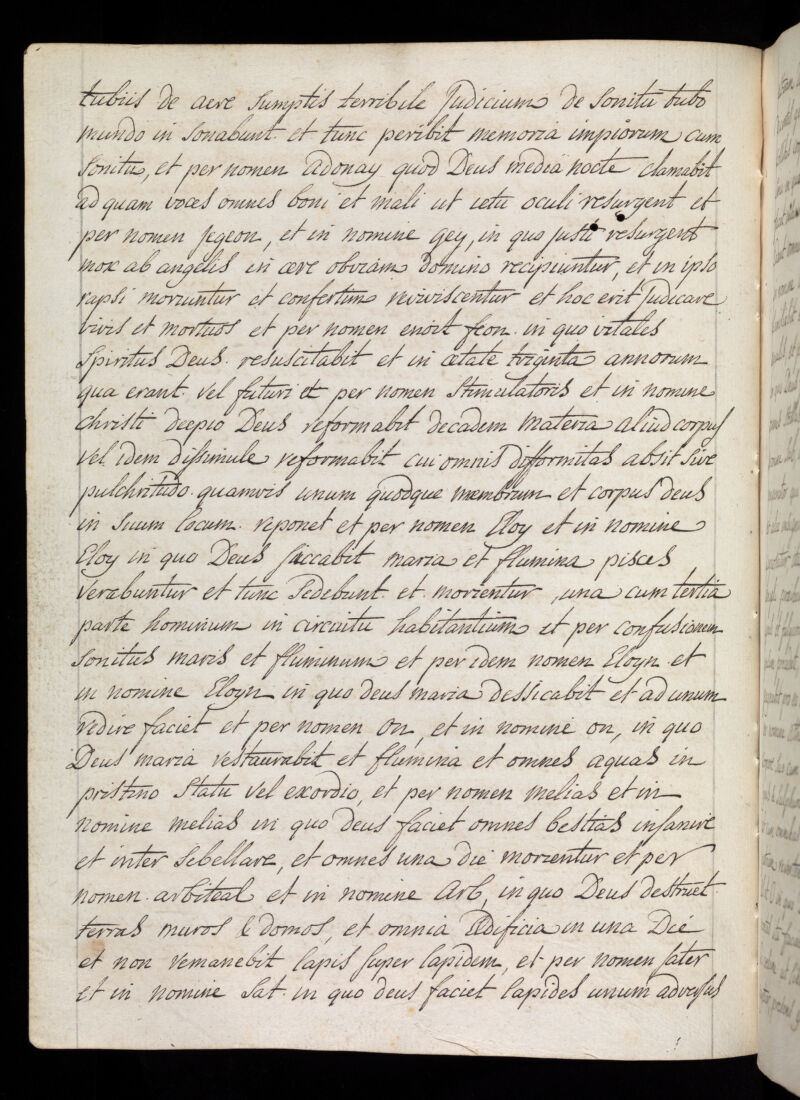 tubiis de aere sumptis terribile Judicium de sonitu tubo
mundo in sonabunt et tunc peribit memoria impiorum cum
sonitu, et per nomen Adonay quod Deus media nocte clamabit
ad quam voces omnes boni et mali ut ictu oculi resurgent et
per nomen Jegeon, et in nomine Gey, in quo justi resurgent
mox ab angelis in aere obviam Domino recipiuntur, et in ipso
rapti morzuntur et confertim reviviscentur et hoc erit Judicare
vivis et mortuos et per nomen enoit feon in quo vitales
Spiritus Deus resuscitabit et in ætate triginta annorum
qua erant vel futuri et per nomen Stimulatoris et in nomine
christi deepio Deus reformabit decadem materia aliud corpus
vel idem dissimule reformabit cui omnis difformitas absit sive
pulchritudo quamvis unum quodque membrum et corpus deus
in suum locum reponet et per nomen Eloy et in nomine
Eloy in quo Deus siccabit maria et flumina pisces
verabuntur et tunc Pedebunt et morzentur, una cum tertia
parte hominum in circuitu habitantium et per confusionem
sonitus maris et fluminum et per idem nomen Eloyn et
in nomine Eloyn in quo deus maria dessicabit et ad unum
redire faciet et per nomen On, et in nomine on, in quo
Deus maria restaurabit et flumina et omnes aquas in
pristino Statu vel exordio, et per nomen melias et in
nomine melias in quo deus faciet omnes bestias insanire
et inter sebellare, et omnes una die morzentur et per
nomen arbiteal et in nomine Arb, in quo Deus destruet
terras muros & domos, et omnia Ædificia in una Die
et non remanebit lapis super lapidem, et per nomen sater
et in nomine Sat in quo deus faciet lapides unum adversus